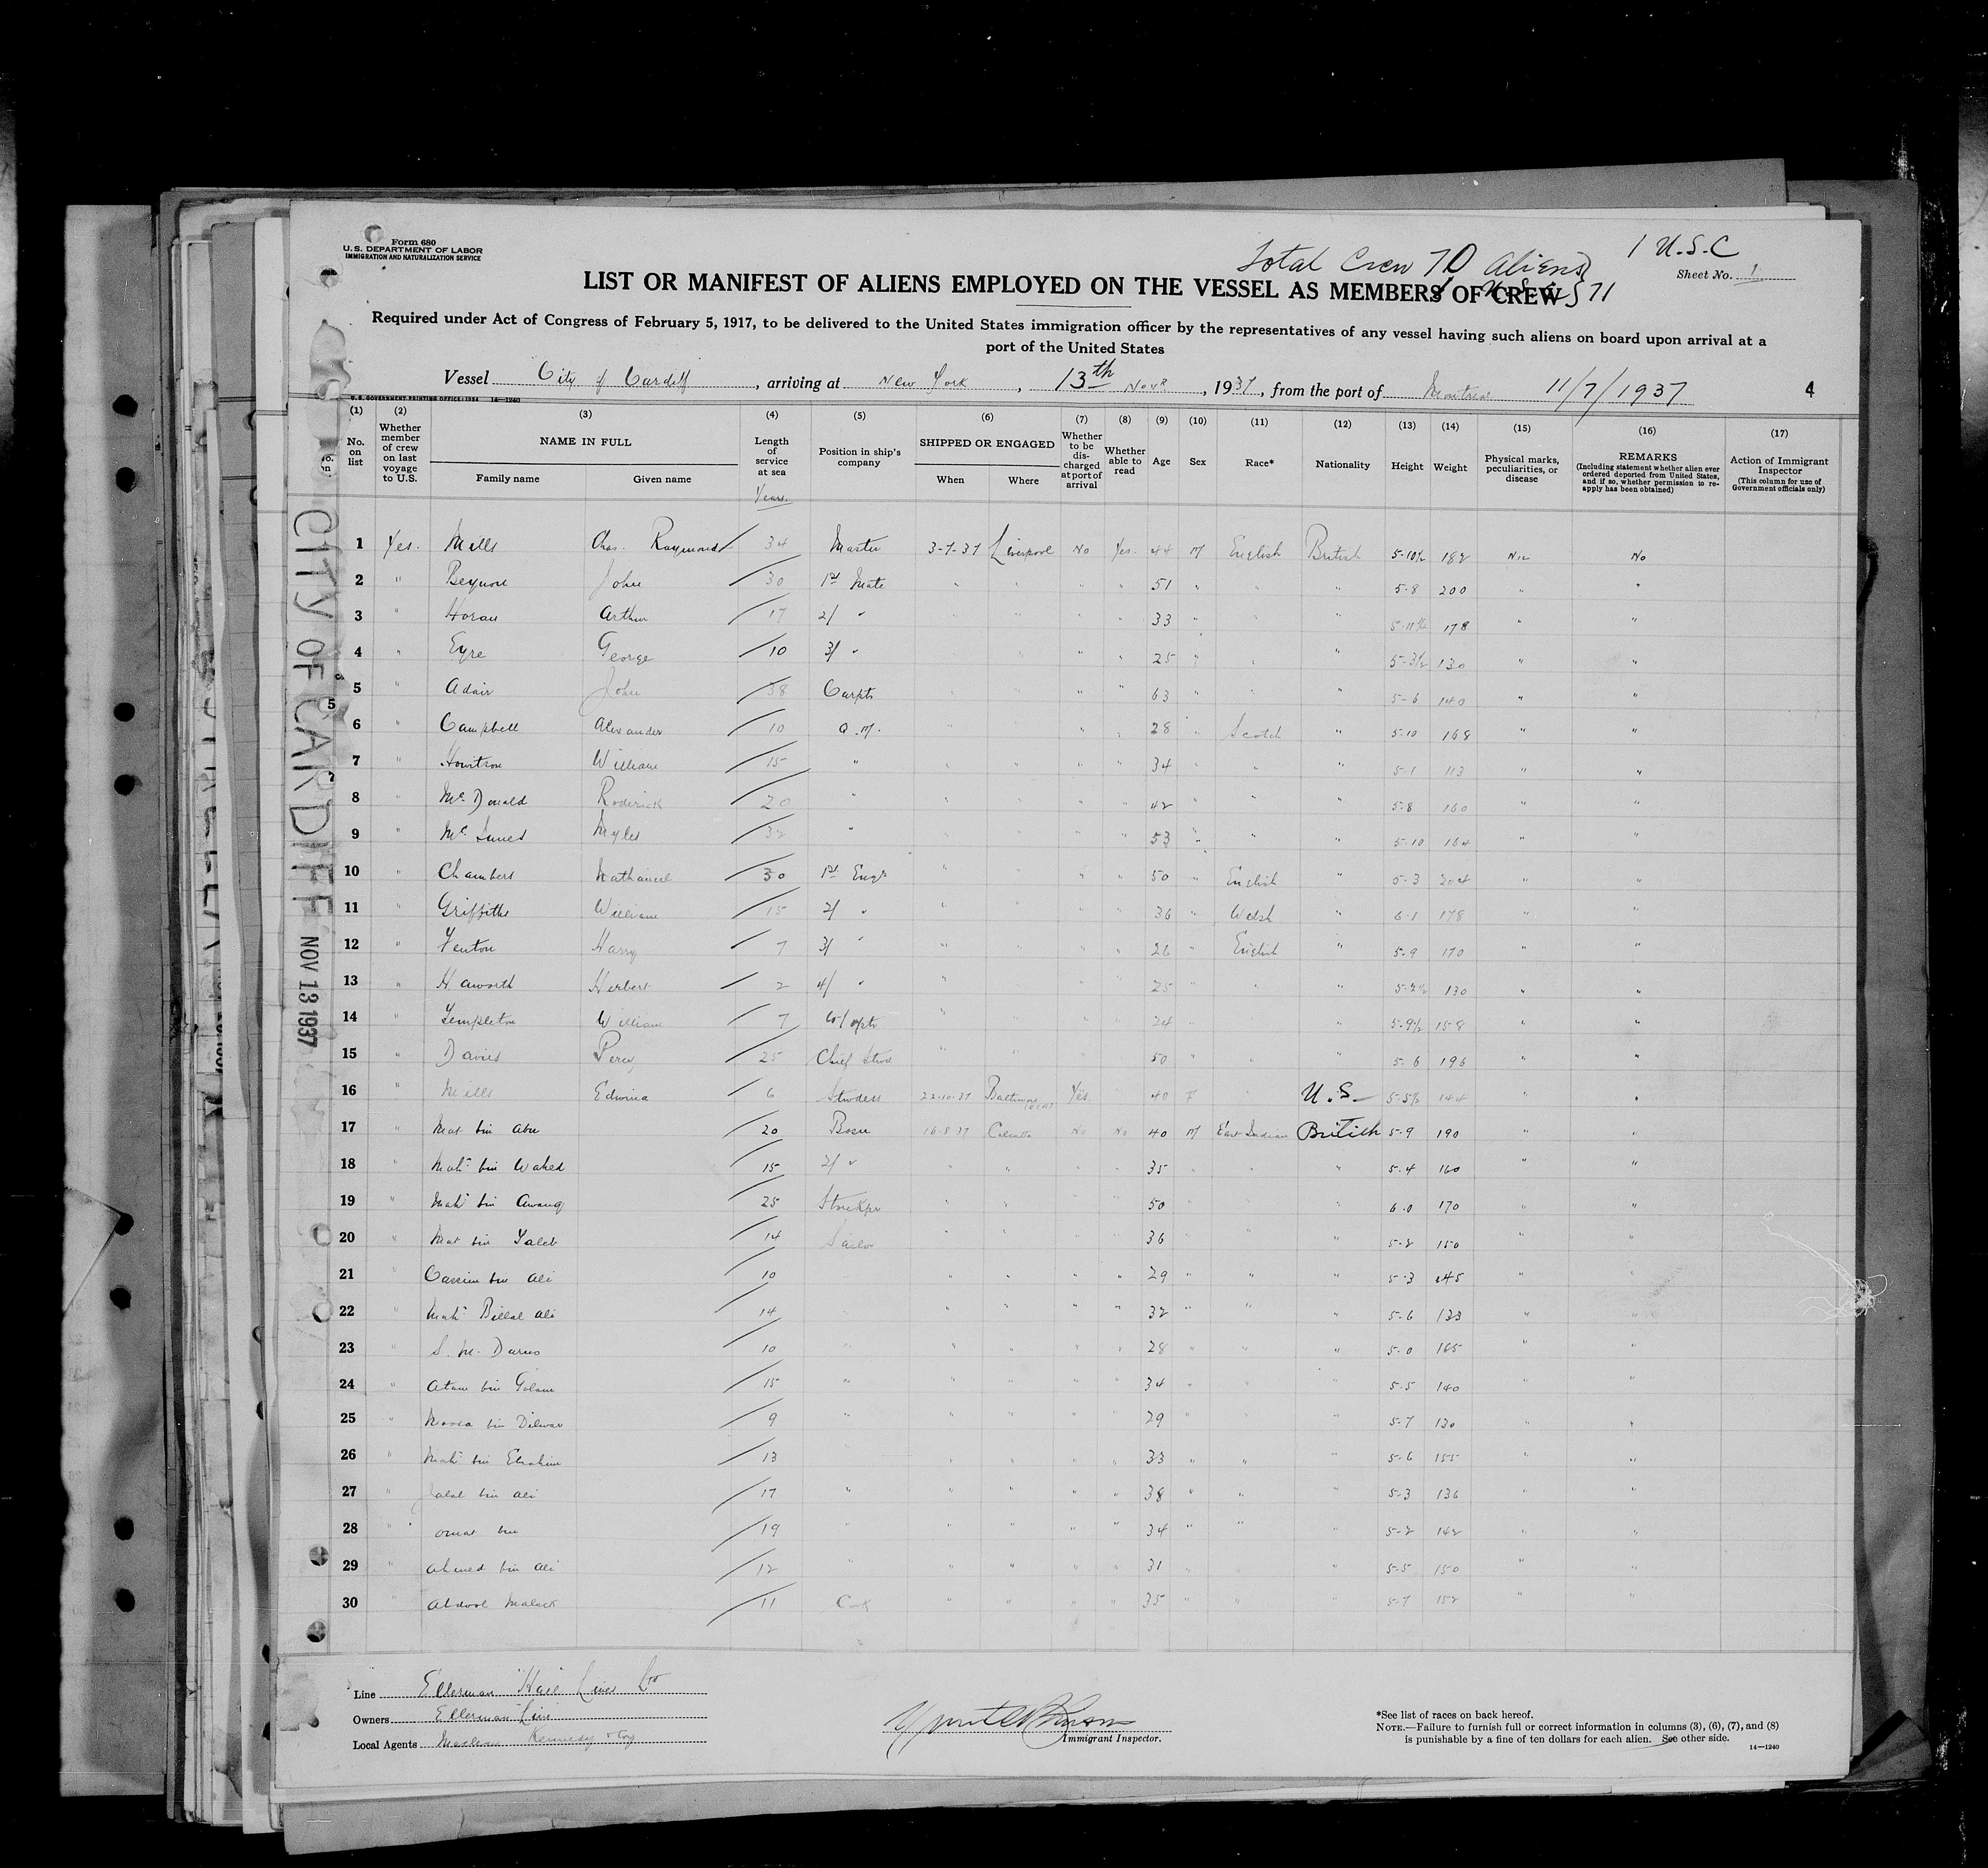 Form 680
U. S. DEPARTMENT OF LABOR
IMMIGRATION AND NATURALIZATION SERVICE
Total Crew 70 Aliens
1 U.S.C
71
Sheet No. 1
LIST OR MANIFEST OF ALIENS EMPLOYED ON THE VESSEL AS MEMBERS OF CREW
Required under Act of Congress of February 5, 1917, to be delivered to the United States immigration officer by the representatives of any vessel having such aliens on board upon arrival at a
port of the United States
Vessel City of Cardiff, arriving at New York, 13th Novr, 1937, from the port of Montreal 11/7/1937
4
U. S. GOVERNMENT PRINTING OFFICE: 1934 14—1240
(1) No. on list
(2) Whether member of crew on last voyage to U.S.
(3) NAME IN FULL Family name Given name
(4) Length of service at sea Years.
(5) Position in ship's company
(6) SHIPPED OR ENGAGED When Where
(7) Whether to be discharged at port of arrival
(8) Whether able to read
(9) Age
(10) Sex
(11) Race*
(12) Nationality
(13) Height
(14) Weight
(15) Physical marks, peculiarities, or disease
(16) REMARKS (Including statement whether alien ever ordered deported from United States, and if so, whether permission to re-apply has been obtained)
(17) Action of Immigrant Inspector (This column for use of Government officials only)
1 Yes. Mills Chas. Raymond 34 Master 3-7-37 Liverpool No Yes. 44 M English British 5-10½ 182 Nil No
2 " Beynon John 30 1st Mate " " " " 51 " " " 5-8 200 " "
3 " Horan Arthur 17 2/ " " " " " 33 " " " 178 " "
4 " Eyre George 10 3/ " " " 25 " " " 5-3½ 130 " "
5 " Adair John 38 Carptr " " 63 " " " 5-6 140 " "
6 " Campbell Alexander 10 Q.M. " " 28 " Scotch " 5-10 168 " "
7 " William 15 " " " " " 34 " " " 5-1 113 " "
8 " McDonald Roderick 20 " " " " " 42 " " " 5-8 160 " "
9 " Myles 32 " " " " " 53 " " " 5-10 164 " "
10 " Chambers Nathaniel 30 1st Engr " " " " 50 " English " 5-3 204 " "
11 " Griffiths William 15 2/ " " " " " 36 " Welsh " 6-1 178 " "
12 " Fenton Harry 7 3/ " " " " " 26 " English " 5-9 170 " "
13 " Haworth Herbert 2 4/ " " " " 25 " " " 130 " "
14 " Templeton William 7 " " " 24 " " 5-9½ 158 " "
15 " Davies Percy 25 Chief Stwd " " " " 50 " " " 5-6 196 " "
16 " Mills Edwina 6 Stwdess 22-10-37 Baltimore Yes. " 40 F " U.S. 5-5½ 144 " "
17 " Mat bin Abu 20 Bosn 16-8-37 Calcutta No No 40 M East Indian British 5-9 190 " "
18 " Mahd bin Wahed 15 2/ " " " " " 35 " " 5-4 160 " "
19 " Mahd bin Awang 25 Storekpr " " 50 " " 6-0 170 " "
20 " Mat bin Taleb 14 Sailor " " 36 " " " 5-2 150 " "
21 " Cassim bin Ali 10 " " " " 29 " " " 5-3 145 " "
22 " Mahd Billal Ali 14 " " " " 32 " " " 5-6 133 " "
23 " 10 " " " " " 28 " " " 5-0 165 " "
24 " 15 " " " " " 34 " " " 5-5 140 " "
25 " 9 " " " " " 29 " " " 5-7 130 " "
26 " Mahd bin Ebrahim 13 " " " " 33 " " " 5-6 155 " "
27 " Jalal bin Ali 17 " " " " " 38 " " " 5-3 136 " "
28 " Omar bin 19 " " " " " 34 " " " 5-2 142 " "
29 " Ahmed bin Ali 12 " " " " " 31 " " " 5-5 150 " "
30 " Abdool Maleck 11 Cook " " " " 35 " " " 5-7 152 " "
CITY OF CARDIFF NOV 13 1937
Line Ellerman Hall Lines Ltd
Owners Ellerman Line
Local Agents Kennedy & Coy
Immigrant Inspector.
*See list of races on back hereof.
NOTE.—Failure to furnish full or correct information in columns (3), (6), (7), and (8)
is punishable by a fine of ten dollars for each alien. See other side.
14—1240